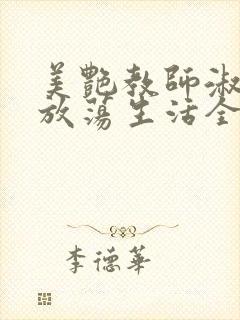 美艷教師淑
放蕩生活全
李德華